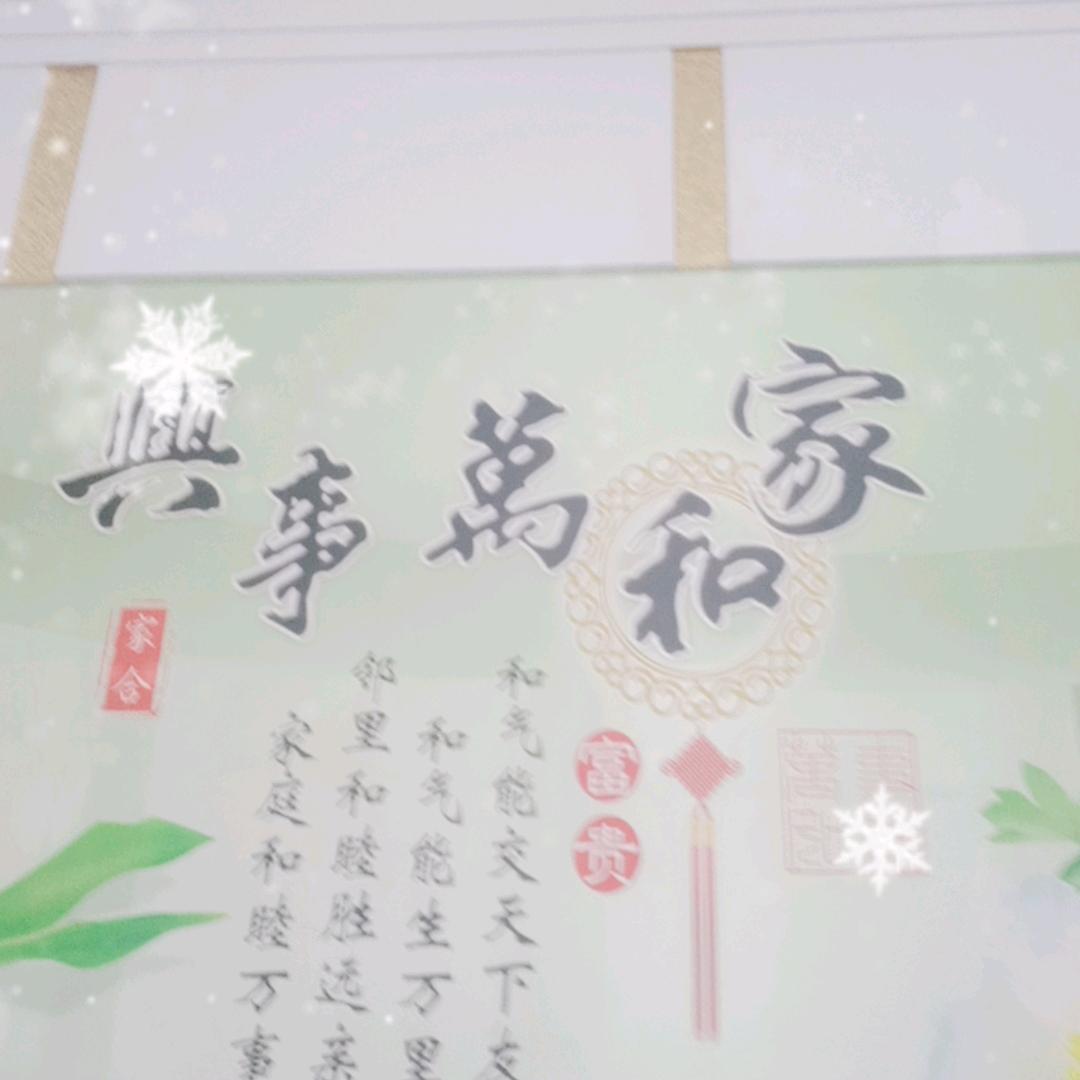 家和萬事興
富贵
和气能交天下友
和气能生万里
邻里和睦胜远亲
家庭和睦万事
家合